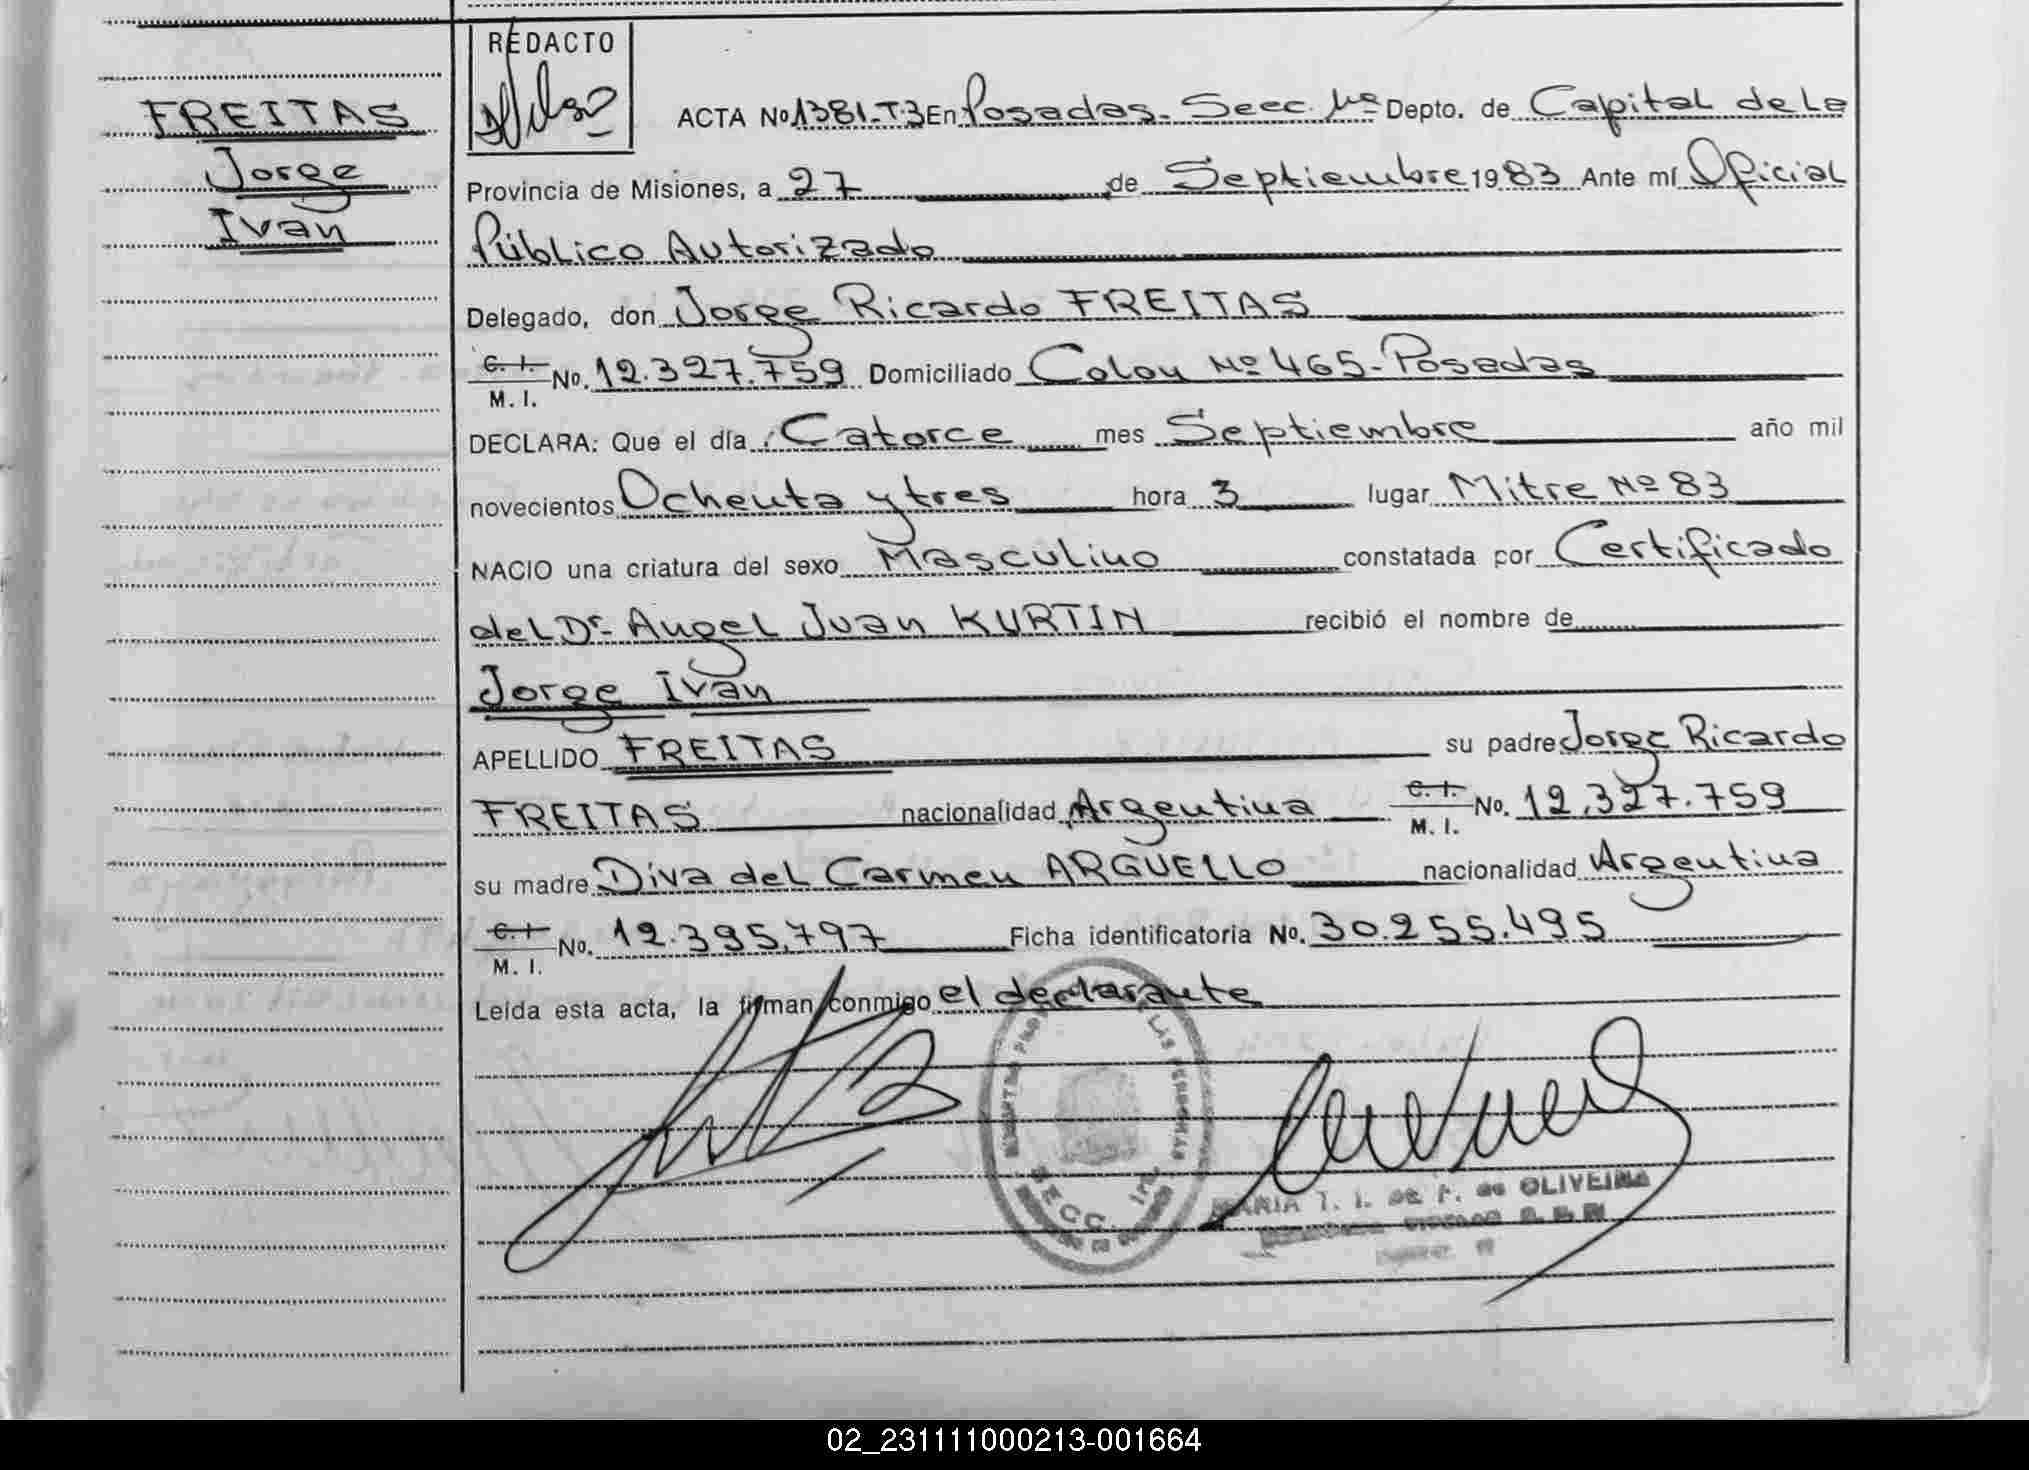 REDACTO
FREITAS
Jorge
Ivan
ACTA No 1381-T-3 En Posadas - Secc. 1ra Depto. de Capital de la
Provincia de Misiones, a 27 de Septiembre 1983 Ante mí Oficial
Público Autorizado
Delegado, don Jorge Ricardo FREITAS
C. I. M. I. No. 12.327.759 Domiciliado Colon Nº 465 - Posadas
DECLARA: Que el día Catorce mes Septiembre año mil
novecientos Ochenta y tres hora 3 lugar Mitre Nº 83
NACIO una criatura del sexo Masculino constatada por Certificado
del Dr. Angel Juan KURTIN recibió el nombre de
Jorge Ivan
APELLIDO FREITAS su padre Jorge Ricardo
FREITAS nacionalidad Argentina C. I. M. I. No. 12.327.759
su madre Diva del Carmen ARGUELLO nacionalidad Argentina
C. I. M. I. No. 12.395.797 Ficha identificatoria No. 30.255.495
Leída esta acta, la firman conmigo el declarante
LAS PERSONAS
SECC. 1ra.
MARIA T. I. DE F. de OLIVEIRA
02_231111000213-001664